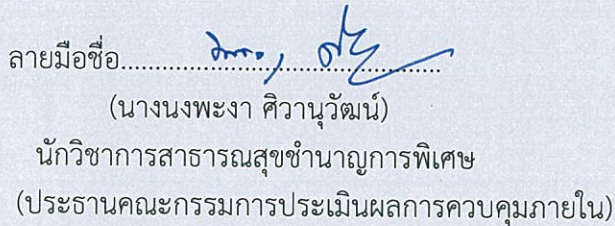 ลายมือชื่อ
(นางนงพะงา ศิวานุวัฒน์)
นักวิชาการสาธารณสุขชำนาญการพิเศษ
(ประธานคณะกรรมการประเมินผลการควบคุมภายใน)